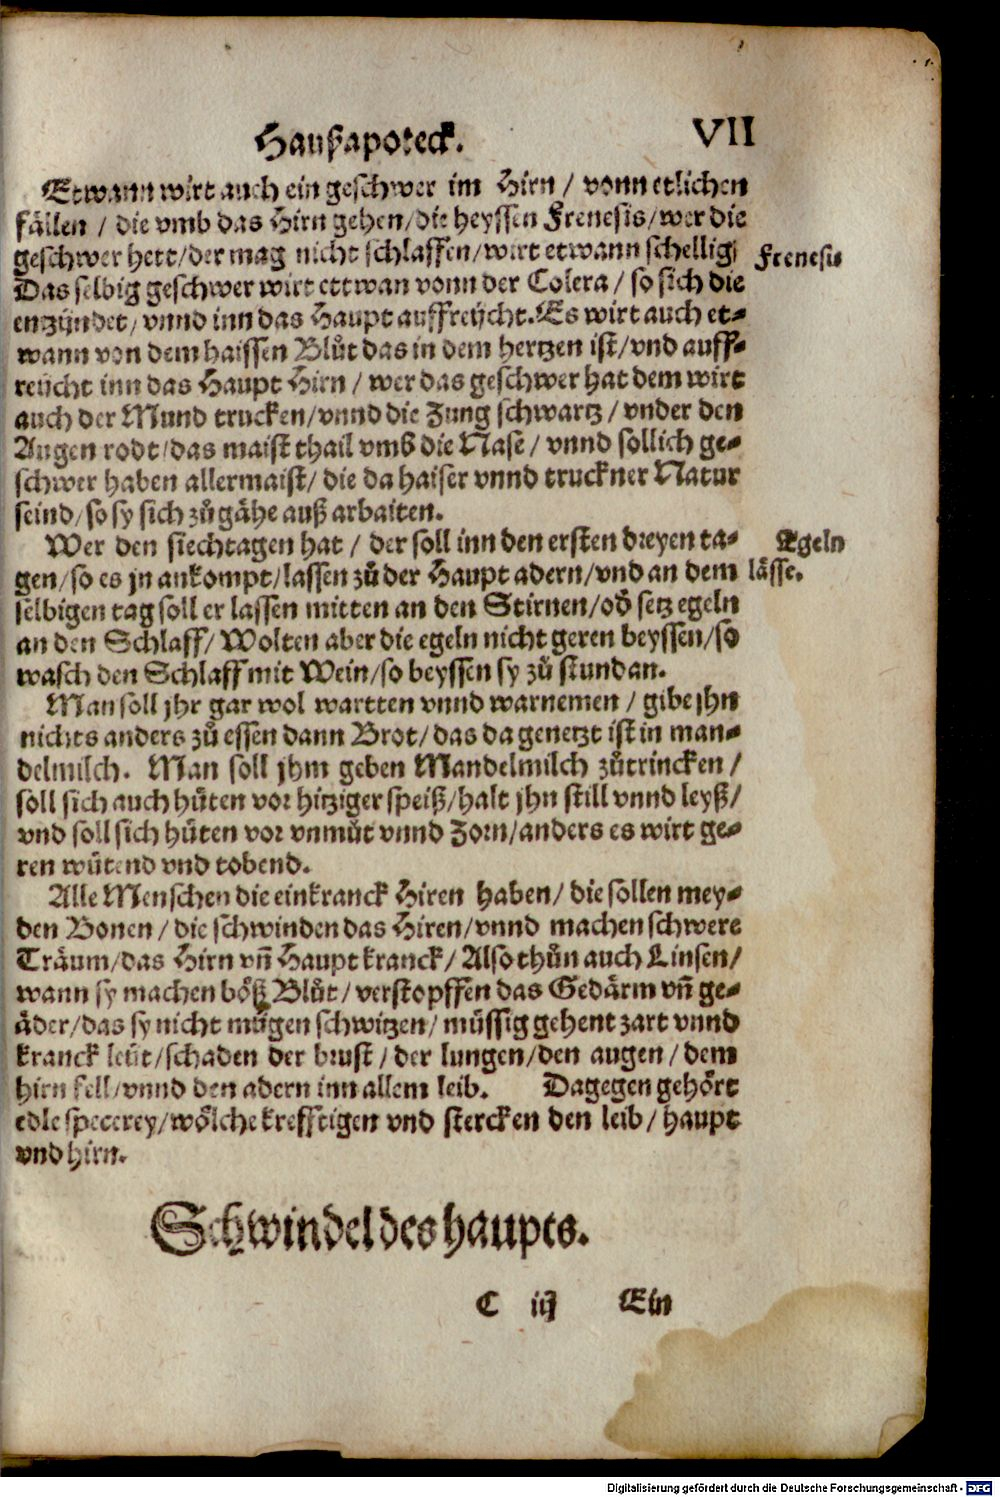 Haußapoteck. VII
Etwann wirt auch ein geschwer im Hirn / vonn etlichen
fällen / die vmb das Hirn gehen/die heyssen Frenesis/wer die
geschwer hett/der mag nicht schlaffen/wirt etwann schellig/
Frenesis
Das selbig geschwer wirt ettwan vonn der Colera / so sich die
entzündet/ vnnd inn das Haupt auffreücht. Es wirt auch et⸗
wann von dem haissen Blůt das in dem hertzen ist/vnd auff⸗
reücht inn das Haupt Hirn / wer das geschwer hat dem wirt
auch der Mund trucken/vnnd die Zung schwartz / vnder den
Augen rodt/das maist thail vmb die Nase / vnnd sollich ge⸗
schwer haben allermaist/ die da haiser vnnd truckner Natur
seind/so sy sich zů gähe auß arbaiten.
Wer den siechtagen hat / der soll inn den ersten dreyen ta⸗
Egeln
gen/so es jn ankompt/lassen zů der Haupt adern/vnd an dem
lässe.
selbigen tag soll er lassen mitten an den Stirnen/od̕ setz egeln
an den Schlaff/ Wolten aber die egeln nicht geren beyssen/so
wasch den Schlaff mit Wein/so beyssen sy zů stund an.
Man soll jhr gar wol wartten vnnd warnemen / gibe jhn
nichts anders zů essen dann Brot/das da genetzt ist in man⸗
delmilch. Man soll jhm geben Mandelmilch zůtrincken /
soll sich auch hüten vor hitziger speiß/halt jhn still vnnd leyß/
vnd soll sich hüten vor vnmůt vnnd Zorn/anders es wirt ge⸗
ren wütend vnd tobend.
Alle Menschen die ein kranck Hiren haben/ die sollen mey⸗
den Bonen / die schwinden das Hiren/vnnd machen schwere
Träum/das Hirn vn̄ Haupt kranck/ Also thůn auch Linsen/
wann sy machen böß Blůt/ verstopffen das Gedärm vn̄ ge⸗
äder/das sy nicht mügen schwitzen/ müssig gehent zart vnnd
kranck leüt/schaden der brust / der lungen/den augen / dem
hirn fell/vnnd den adern inn allem leib. Dagegen gehört
edle specerey/wölche krefftigen vnd stercken den leib/ haupt
vnd hirn.
Schwindel des haupts.
C iij Ein
Digitalisierung gefördert durch die Deutsche Forschungsgemeinschaft - DFG